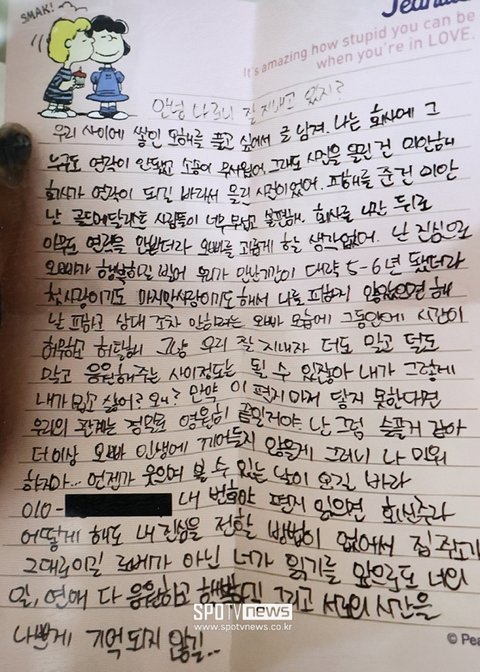 SMAK!
Peanuts
It's amazing how stupid you can be
when you're in LOVE.
안녕 나르니 잘 지내고 있지?
우리 사이에 쌓인 오해를 풀고 싶어서 글 남겨. 나는 회사에 그
누구도 연락이 안됐고 소송이 무서웠어. 그래도 사진을 올린 건 미안해
회사가 연락이 되길 바래서 올린 사진이었어. 피해를 준건 미안
난 골드메달리스트 사람들이 너무 무섭고 불편해. 회사를 나간 뒤로
아무도 연락을 안받더라 오빠를 괴롭게 할 생각 없어. 난 진심으로
오빠가 행복하길 빌어 우리가 만난기간이 대략 5-6년 됐더라
첫사랑이기도 마지막사랑이기도 해서 나를 피하지 않았으면 해
날 피하고 상대 조차 안하려는 오빠 모습에 그동안에 시간이
허무하고 허탈해 그냥 우리 잘 지내자 더도 말고 덜도
말고 응원해주는 사이정도는 될 수 있잖아 내가 그렇게
내가 밉고 싫어? 왜? 만약 이 편지마저 닿지 못한다면
우리의 관계는 정말로 영원히 끝일거야 난 그럼 슬플거 같아
더이상 오빠 인생에 끼어들지 않을게 그러니 나 미워
하지마... 언젠가 웃으며 볼 수 있는 날이 오길 바라
010- 내 번호야 편지 읽으면 회신주라
어떻게 해도 내 진심을 전할 방법이 없어서 집 주소가
그대로이길 로베가 아닌 너가 읽기를 앞으로도 너의
일, 연애 다 응원하고 행복하고 그리고 서로의 시간을
나쁘게 기억 되지 않길..
SPOTVnews
www.spotvnews.co.kr
© Pea